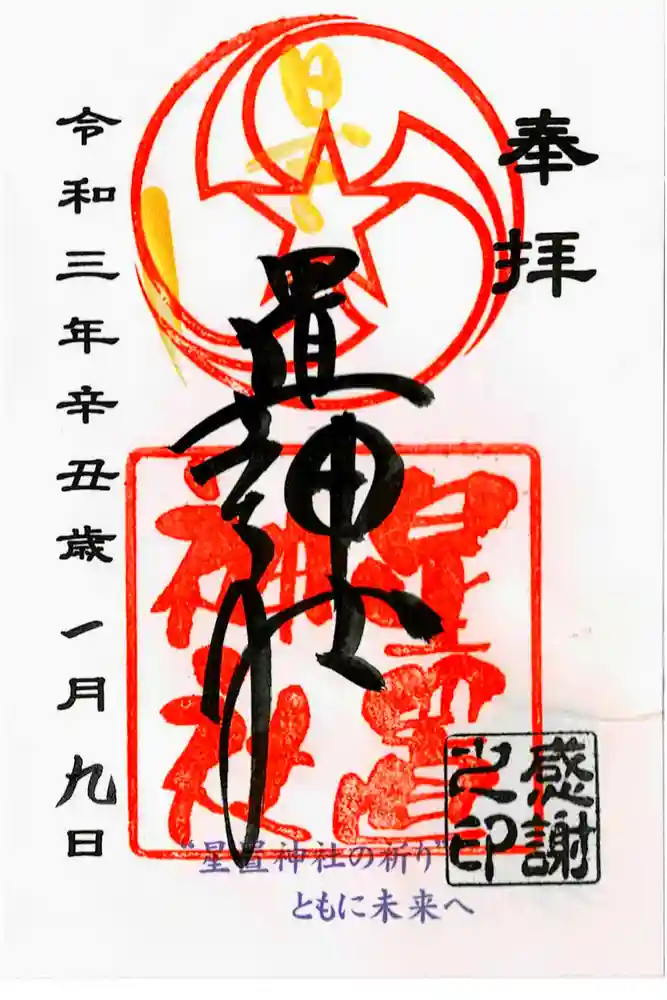 奉拝
星置神社
星置
神社
感謝
之印
令和三年辛丑歳 一月九日
“星置神社の祈り”
ともに未来へ